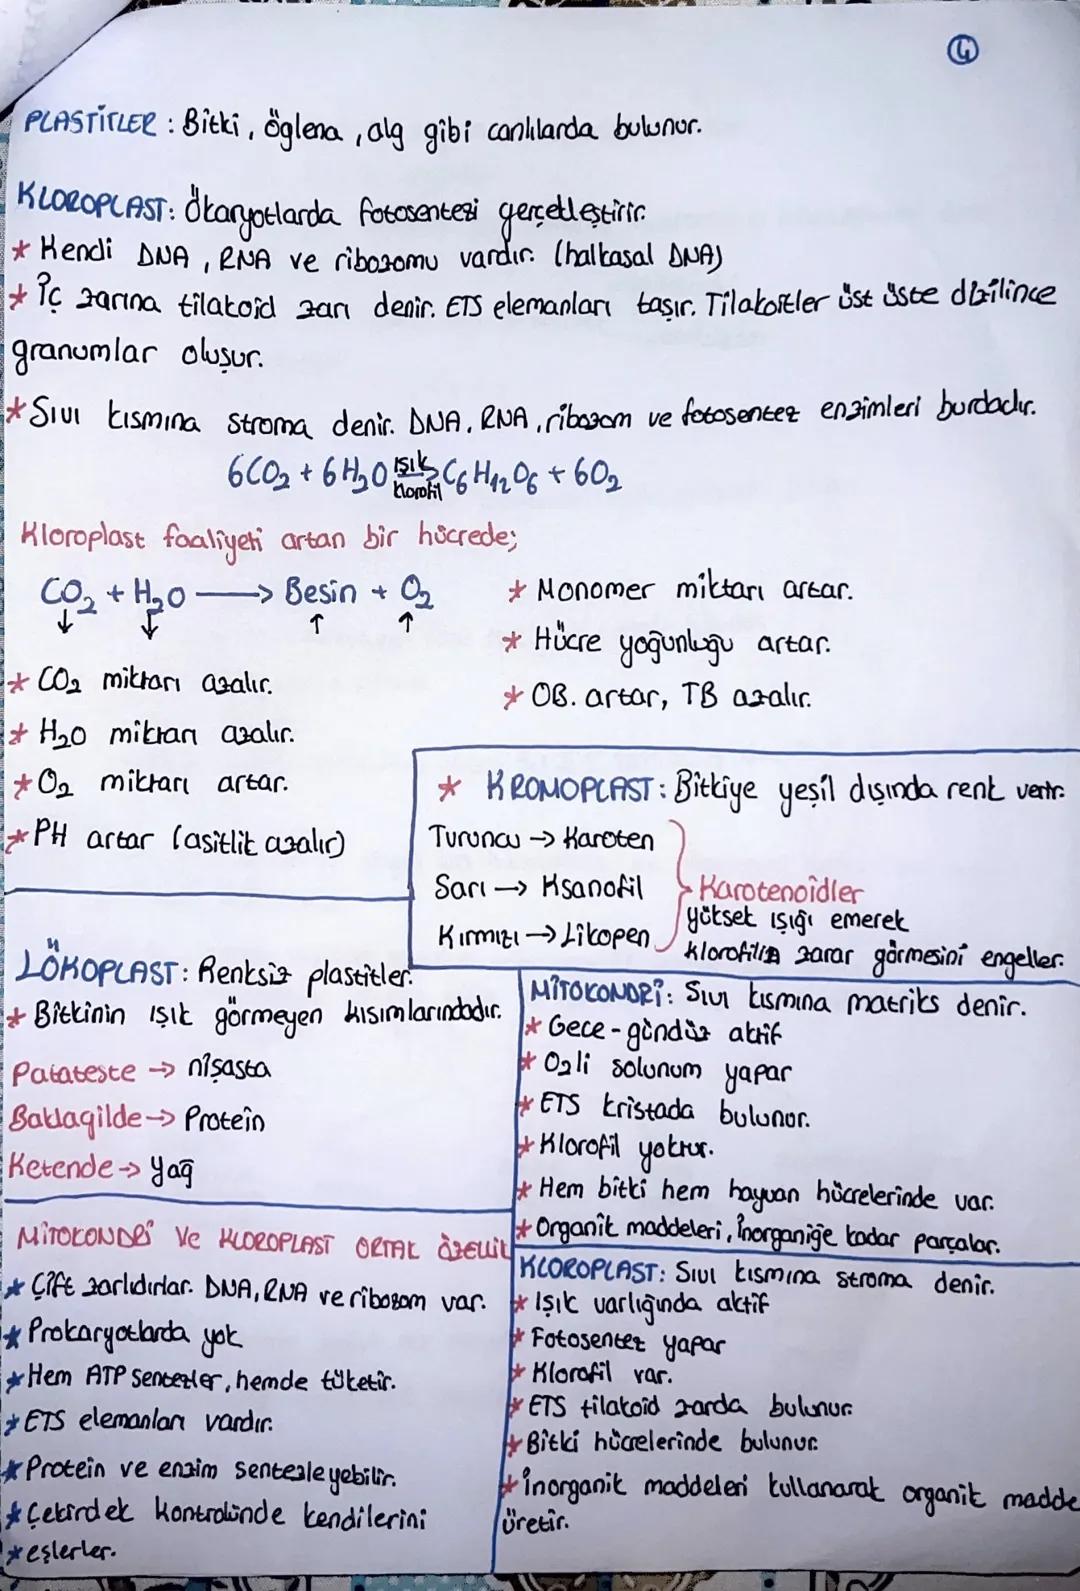 4
PLASTİTLER : Bitki, öglena, alg gibi canlılarda bulunur.
KLOROPLAST: Ökaryotlarda fotosentezi gerçekleştirir.
* Kendi DNA, RNA ve ribozomu vardır. (halkasal DNA)
* İç zarına tilakoid zarı denir. ETS elemanları taşır. Tilakoitler üst üste dizilince
granumlar oluşur.
* Sıvı kısmına stroma denir. DNA, RNA, ribozom ve fotosentez enzimleri burdadır.
6CO₂ + 6H₂O ışık → klorofil C₆H₁₂O₆ + 6O₂
Kloroplast faaliyeti artan bir hücrede;
CO₂ + H₂O → Besin + O₂
↓ ↓ ↑ ↑
* CO₂ miktarı azalır.
* H₂O miktarı azalır.
* O₂ miktarı artar.
* PH artar (asitlik azalır)
* Monomer miktarı artar.
* Hücre yoğunluğu artar.
* OB. artar, TB azalır.
* KROMOPLAST: Bitkiye yeşil dışında renk verir.
Turuncu → Karoten
Sarı → Ksanofil
Kırmızı → Likopen
Karotenoidler
yüksek ışığı emerek
klorofilin zarar görmesini engeller.
LÖKOPLAST: Renksiz plastitler.
* Bitkinin ışık görmeyen kısımlarındadır.
Patateste → nişasta
Baklagilde → Protein
Ketende → Yağ
MİTOKONDRİ: Sıvı kısmına matriks denir.
* Gece - gündüz aktif
* O₂li solunum yapar
* ETS kristada bulunur.
* Klorofil yoktur.
* Hem bitki hem hayvan hücrelerinde var.
* Organik maddeleri, inorganiğe kadar parçalar.
MİTOKONDRİ ve KLOROPLAST ORTAK ÖZELLİK
* Çift zarlıdırlar. DNA, RNA ve ribozom var.
* Prokaryotlarda yok
* Hem ATP sentezler, hemde tüketir.
* ETS elemanları vardır.
* Protein ve enzim sentezleyebilir.
* Çekirdek kontrolünde kendilerini
* eşlerler.
KLOROPLAST: Sıvı kısmına stroma denir.
* Işık varlığında aktif
* Fotosentez yapar
* Klorofil var.
* ETS tilakoid zarda bulunur.
* Bitki hücrelerinde bulunur.
* İnorganik maddeleri kullanarak organik madde
üretir.